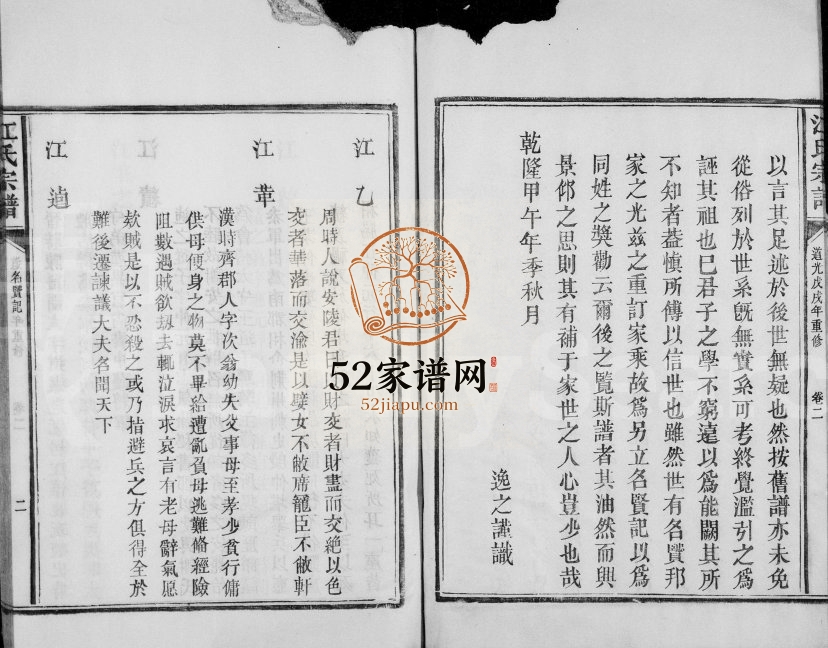 江氏宗譜
道光戊戌年重修
卷二
以言其足述於後世無疑也然按舊譜亦未免
從俗列於世系旣無實系可考終覺濫引之爲
誣其祖也巳君子之學不窮遠以爲能闕其所
不知者葢慎所傳以信世也雖然世有名賢邦
家之光兹之重訂家乘故爲另立名賢記以爲
同姓之獎勸云爾後之覽斯譜者其油然而興
景仰之思則其有補于家世之人心豈少也哉
乾隆甲午年季秋月
逸之謹識
江乙
周時人說安陵君曰財交者財盡而交絕以色
交者華落而交渝是以嬖女不敝席寵臣不敝軒
江革
漢時齊郡人字次翁幼失父事母至孝少貧行傭
供母便身之物莫不畢給遭亂負母逃難備經險
阻數遇賊欲刼去輒泣淚求哀言有老母辭氣愿
欵賊是以不恐殺之或乃指避兵之方俱得全於
難後遷諫議大夫名聞天下
江逌
江氏宗譜
名賢記
卷二
二
52家谱网
52jiapu.com